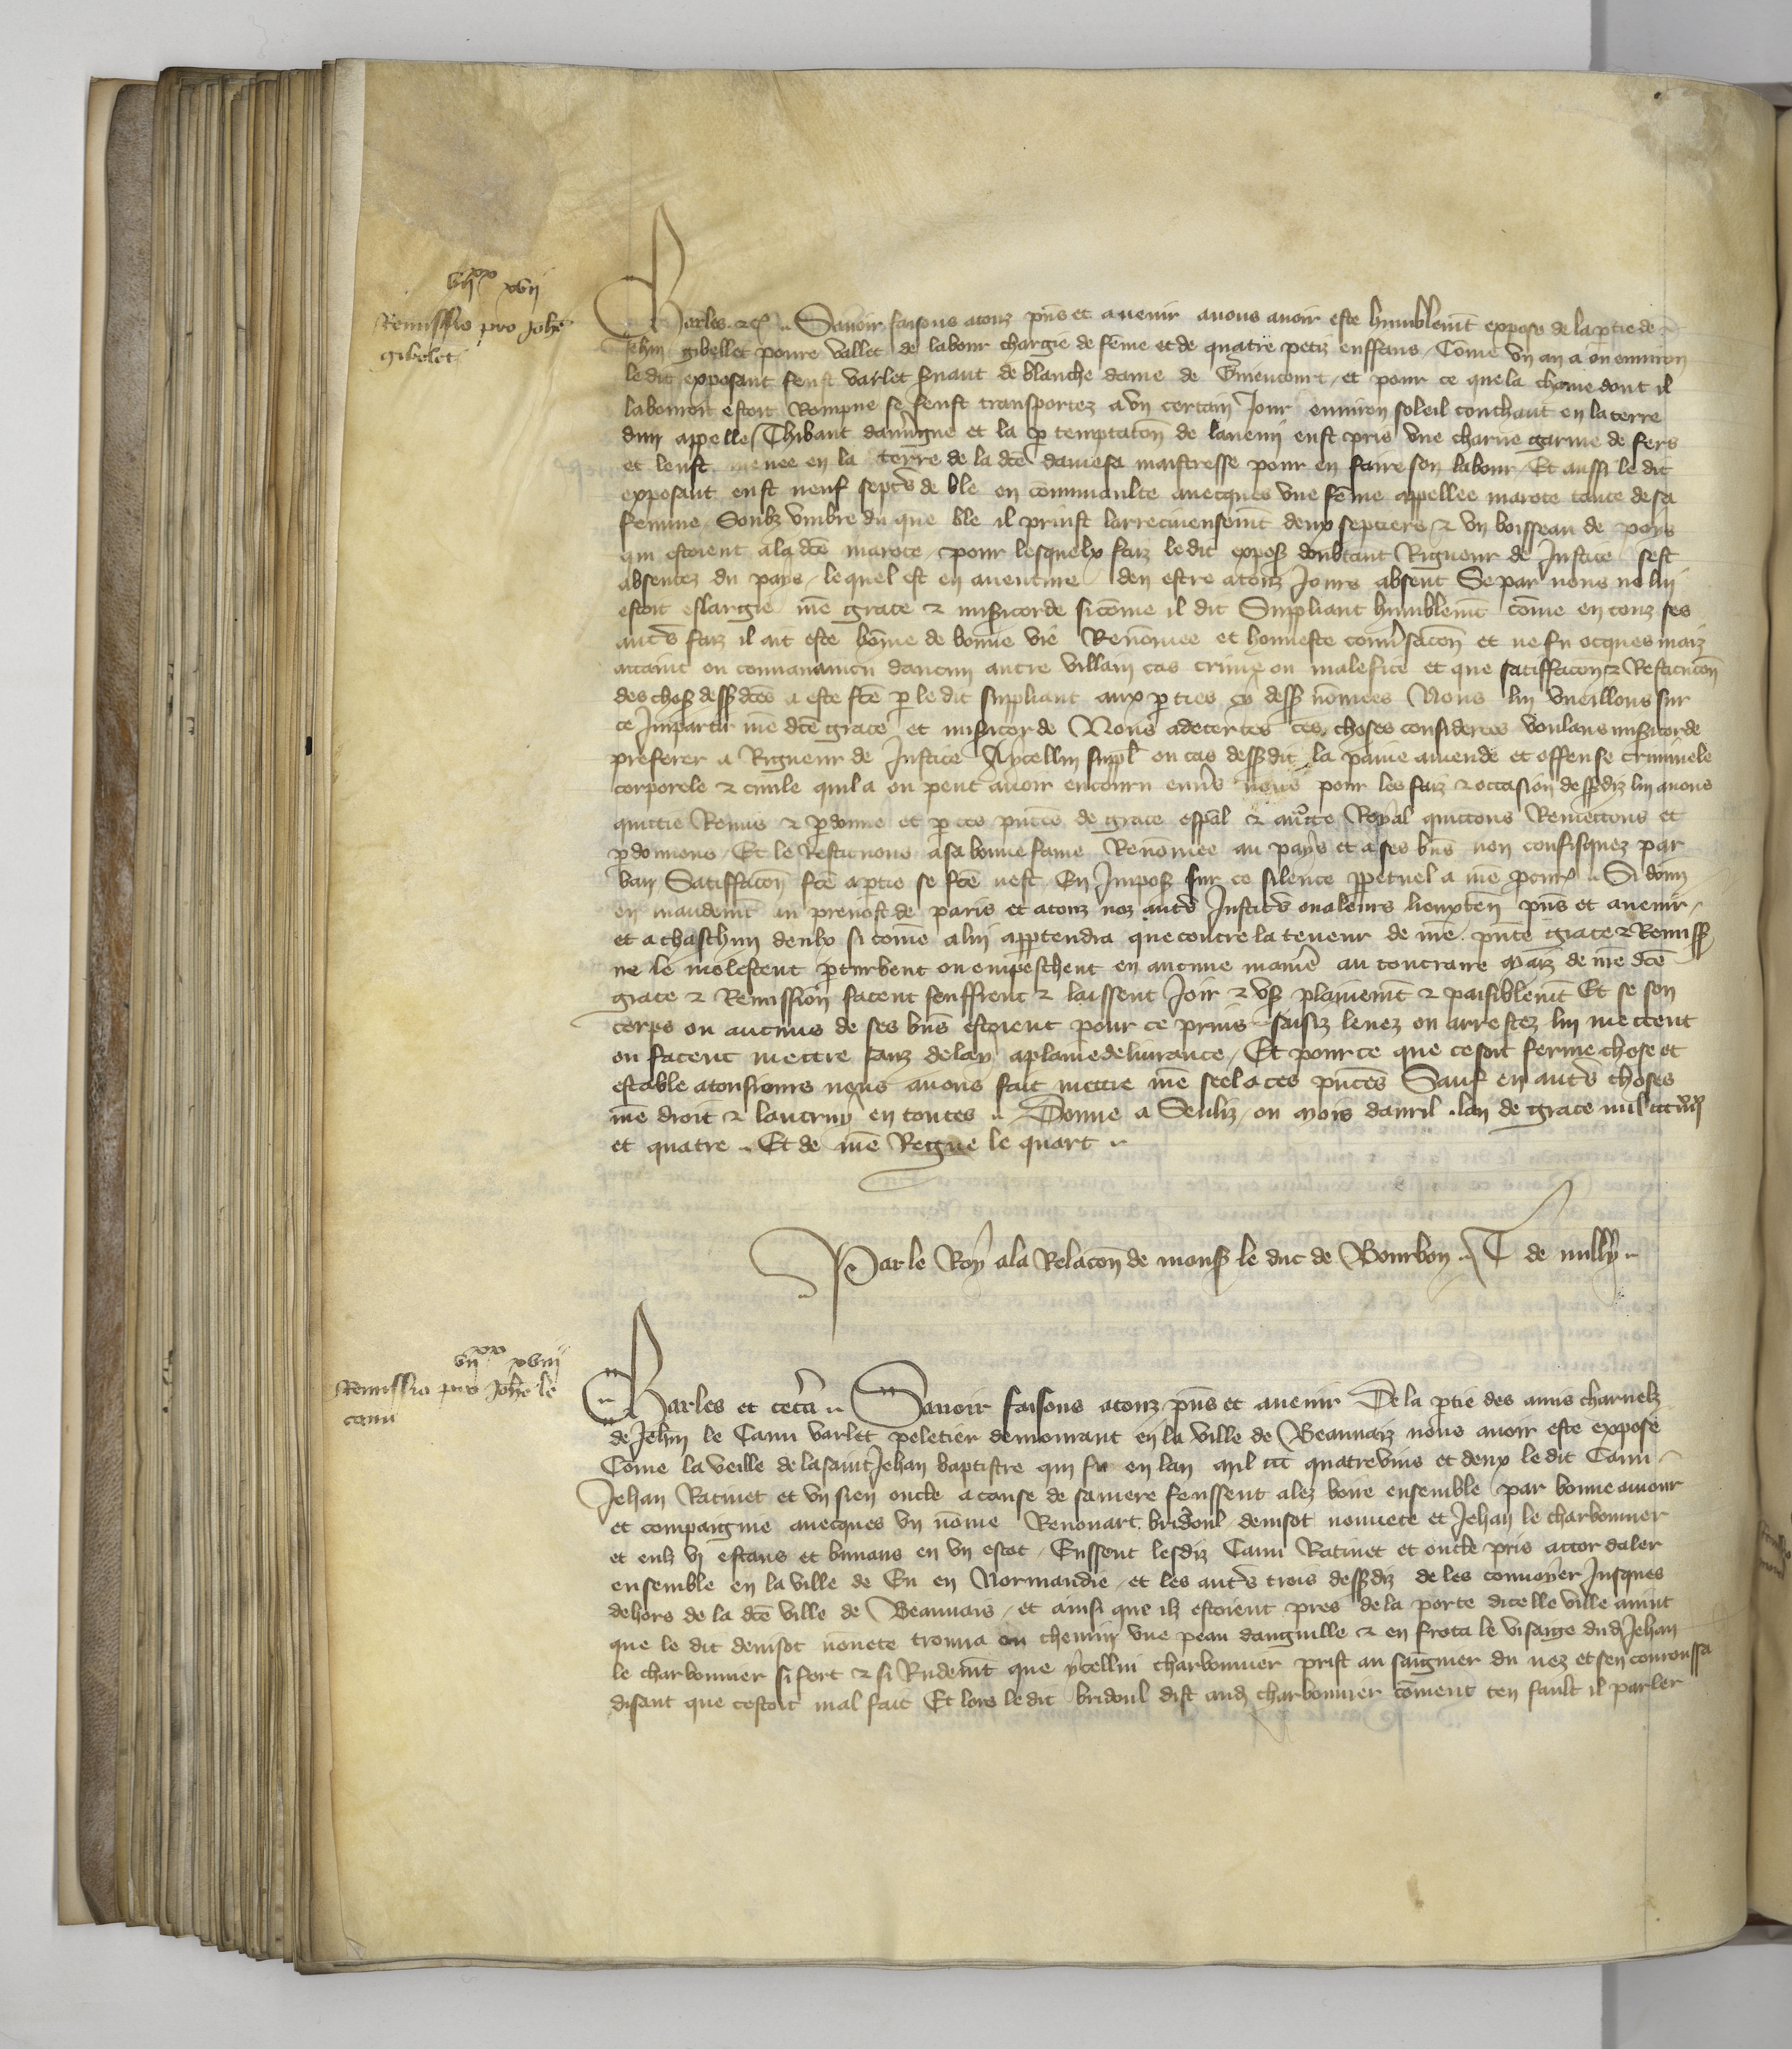 vii^xx xvii
Remissio pro Johe
gibelet
Charles etc. Savoir faisons a touz pns et avenir a nous avoir este humblemt expose de la ptie de
Jehan gibellet povre vallet de labour chargie de feme et de quatre petiz enffans, Come un an a ou environ
le dit exposant feust varlet svant de blanche dame de et pour ce que la charue dont il
labouroit estoit Rompue se feust transportez a un certain Jour environ soleil couchant en la terre
dun appelle Thibaut et la p temptacon de lanemi eust pris une charue garnie de fers
et leust menee en la terre de la dce dame sa maistresse pour en faire son labour Et aussi le dit
exposant eust neuf septs de ble en communalte avecques une feme appellee marote tante de sa
femme Soubz umbre du que ble il prinst larrecineusemt deux septiers et un boisseau de pois
qui estoient a la dce marote, pour lesquelx faiz le dit expos doubtant Rigueur de Justice sest
absentez du pays, lequel est en aventure den estre a touz Jours absent Se par nous ne lui
estoit eslargie nre grace et misicorde si come il dit Suppliant humblemt come en touz ses
auts faiz il ait este home de bonne vie Renomee et honneste convsacon et ne fu ocques maiz
attaint ou convaincu daucun autre villain cas crime ou malefice et que satiffacon et Restitucon
des choses dessus dces a este fce p le dit suppliant aux pties cy dess nomees Nous lui vueillons sur
ce Impartir nre dce grace et misicorde Nous adecertes ces choses considerees voulans misicorde
preferer a Rigueur de Justice Aycellui suppl ou cas dessusdit la paine amende et offense criminele
corporele et civile quil a ou peut avoir encouru envs nous pour les faiz et occasion dessdiz lui avons
quittie Remis et pdonne et p ces pntes de grace espal et auctte Royal quittons Remettons et
pdonnons, Et le Restituons a sa bonne fame Renomee au pays et a ses bns non confisquez par
ban Satiffacon fce a ptie se fce nest En Impos sur ce silence ppetuel a nre pcur Si donn
en mandemt au prevost de paris et a touz noz auts Justics ou a leurs lieuxten pns et avenir,
et a chaschun deulx si come a lui apptendra que contre la teneur de nre pnte grace et Remiss
ne le molestent pturbent ou empeschent en aucune manie au contraire Maiz de nre dce
grace et Remission facent seuffrent et laissent Joir et us plainemt et paisiblemt Et se son
corps ou aucuns de ses bns estoient pour ce prins saisiz levez ou arrestez lui mettent
ou facent mettre sanz delay a plaine delivrance, Et pour ce que ce soit ferme chose et
estable a tousjours nous avons fait mettre nre seel a ces pntes Sauf en auts choses
nre droit et lautruy en toutes Donne a Senliz ou mois davril lan de grace mil ccc iiiixx
et quatre Et de nre Regne le quart
Par le Roy a la Relacon de mons le duc de Bourbon T de milly
vii^xx xviii
Remissio pro Johe le
canu
Charles et cetera Savoir faisons a touz pns et avenir De la ptie des amis charnelz
de Jehan le Canu varlet peletier demourant en la ville de Beauvaiz nous avoir este expose
Come la veille de la saint Jehan baptistre qui fu en lan mil ccc quatrevins et deux le dit Canu
Jehan Ratinet et un sien oncle a cause de sa mere feussent alez boire ensemble par bonne amour
et compaignie avecques un nome Renouart bridoul denisot nonnete et Jehan le charbonnier
et eulx vi estans et buvans en un escot, Eussent lesdiz Canu Ratinet et oncle pris accor daler
ensemble en la ville de Eu en Normandie, et les auts trois dessdiz de les convoier Jusques
dehors de la dce ville de Beauvais, et ainsi que ilz estoient pres de la porte dicelle ville avint
que le dit denisot nonete trouva ou chemin une peau danguille et en frota le visaige dud Jehan
le charbonnier si fort et si Rudemt que ycellui charbonnier prist au saignier du nez et sen courroussa
disant que cestoit mal fait Et lors ledit bridoul dist aud charbonnier coment ten fault il parler